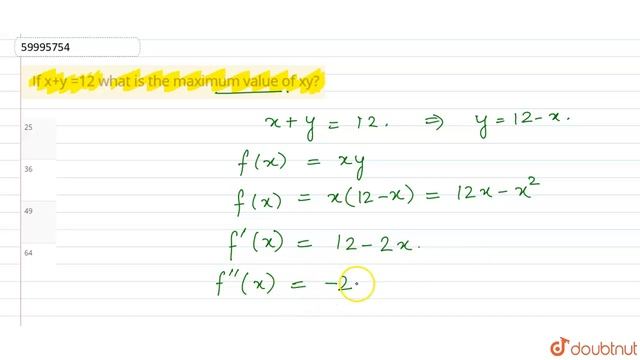 59995754
If x+y =12 what is the maximum value of xy?
x + y = 12. ⇒ y = 12 - x.
25
f(x) = xy
36
f(x) = x(12-x) = 12x - x²
49
f'(x) = 12 - 2x.
64
f''(x) = -2.
doubtnut